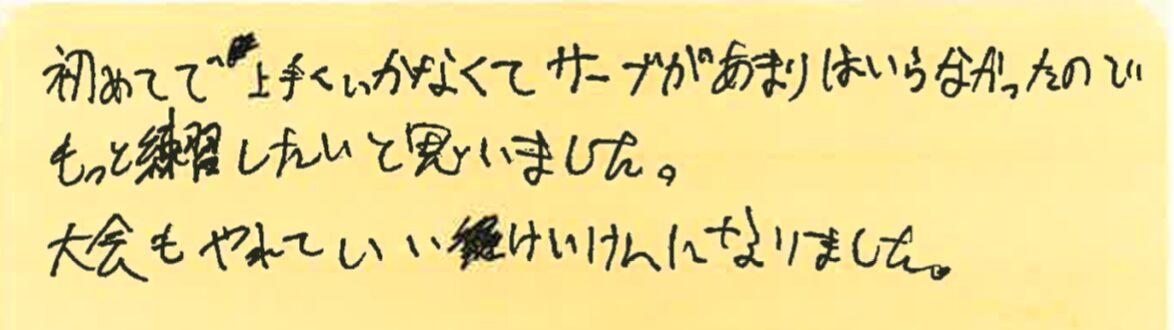 初めてで上手くいかなくてサーブがあまりはいらなかったので
もっと練習したいと思いました。
大会もやれていいけいけんになりました。